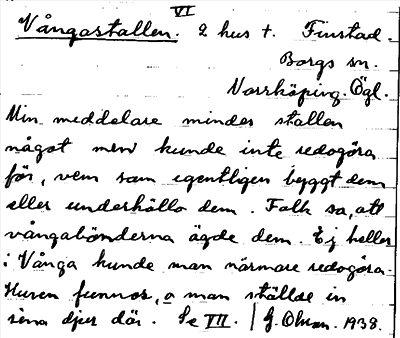 VI
Vångastallen. 2 hus t. Finstad.
Borgs sn.
Norrköping. Ögl.
Min meddelare mindes stallen
något men kunde inte redogöra
för, vem som egentligen byggt dem
eller underhållo dem. Folk sa, att
vångabönderna ägde dem. Ej heller
i Vånga kunde man närmare redogöra.
Husen funnos, o man ställde in
sina djur där. Se VII. / G. Olson. 1938.